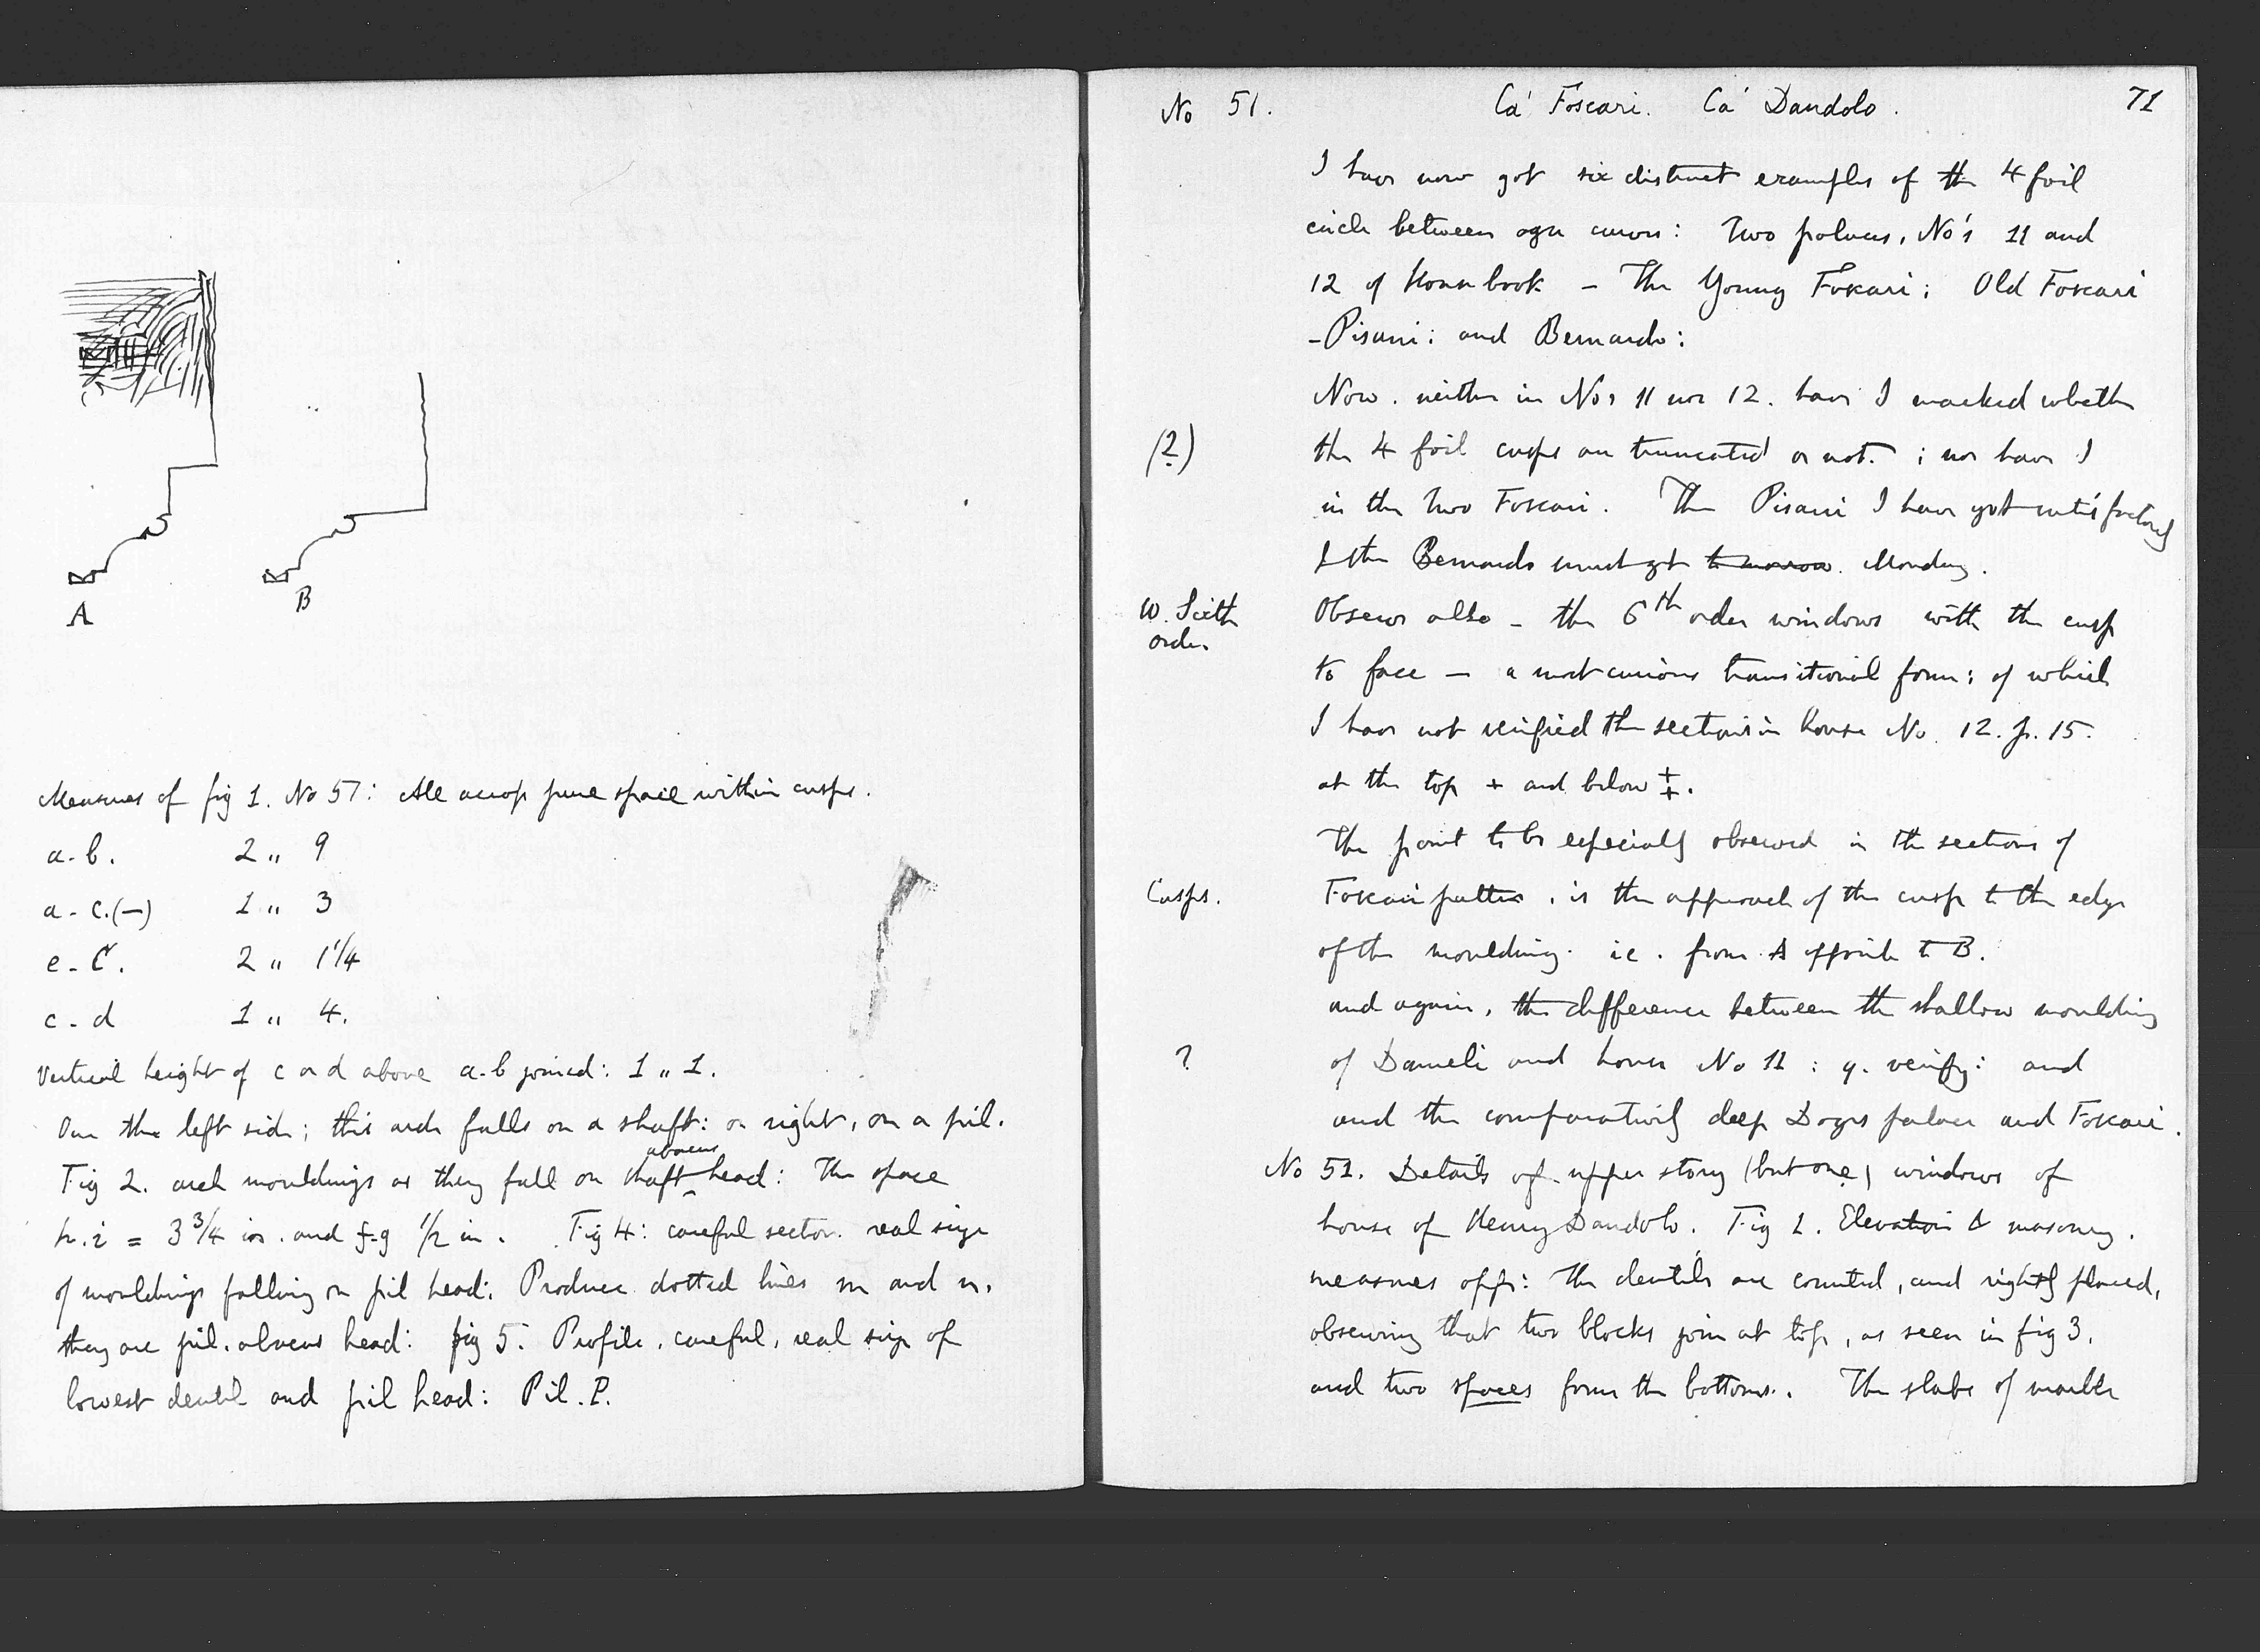 A
B
Measures of fig 1. No 51: All across pure space within cusps.
a-b. 2 " 9
a-c.(—) 1 " 3
e-c. 2 " 1 1/4
c-d 1 " 4.
Vertical height of c or d above a-b joined: 1 " 1.
On the left side; this arch falls on a shaft: on right, on a pil.
abacus
Fig 2. arch mouldings as they fall on shaft head: The space
h.i = 3 3/4 in. and f-g 1/2 in. Fig 4: careful section. real size
of mouldings falling on pil head: Produce dotted lines m and n.
they are pil. abacus head: fig 5. Profile, careful, real size of
lowest dentil and pil head: Pil. P.
No 51. Ca' Foscari. Ca' Dandolo. 71
I have now got six distinct examples of the 4 foil
circle between ogee curves: Two palaces, No's 11 and
12 of House book – The Young Foscari; Old Foscari
– Pisani: and Bernardo:
Now. neither in Nos 11 nor 12. have I marked whether
(?) the 4 foil cusps are truncated or not. ; nor have I
in the two Foscari. The Pisani I have got satisfactorily
& the Bernardo must get to morrow. Monday.
W. Sixth Observe also – the 6th order windows with the cusp
order.
to face – a most curious transitional form: of which
I have not verified the section in house No. 12. p. 15.
at the top + and below ++.
The point to be especially observed in the sections of
Cusps. Foscari pattern, is the approach of the cusp to the edge
of the moulding. ie. from A opposite to B.
and again, the difference between the shallow moulding
? of Danieli and house No 11 : q. verify: and
and the comparatively deep Doges palace and Foscari.
No 51. Details of upper story (but one) windows of
house of Henry Dandolo. Fig 1. Elevation & masonry.
measures opp: The dentils are counted, and rightly placed,
observing that two blocks join at top, as seen in fig 3.
and two spaces form the bottoms. The slabs of marble